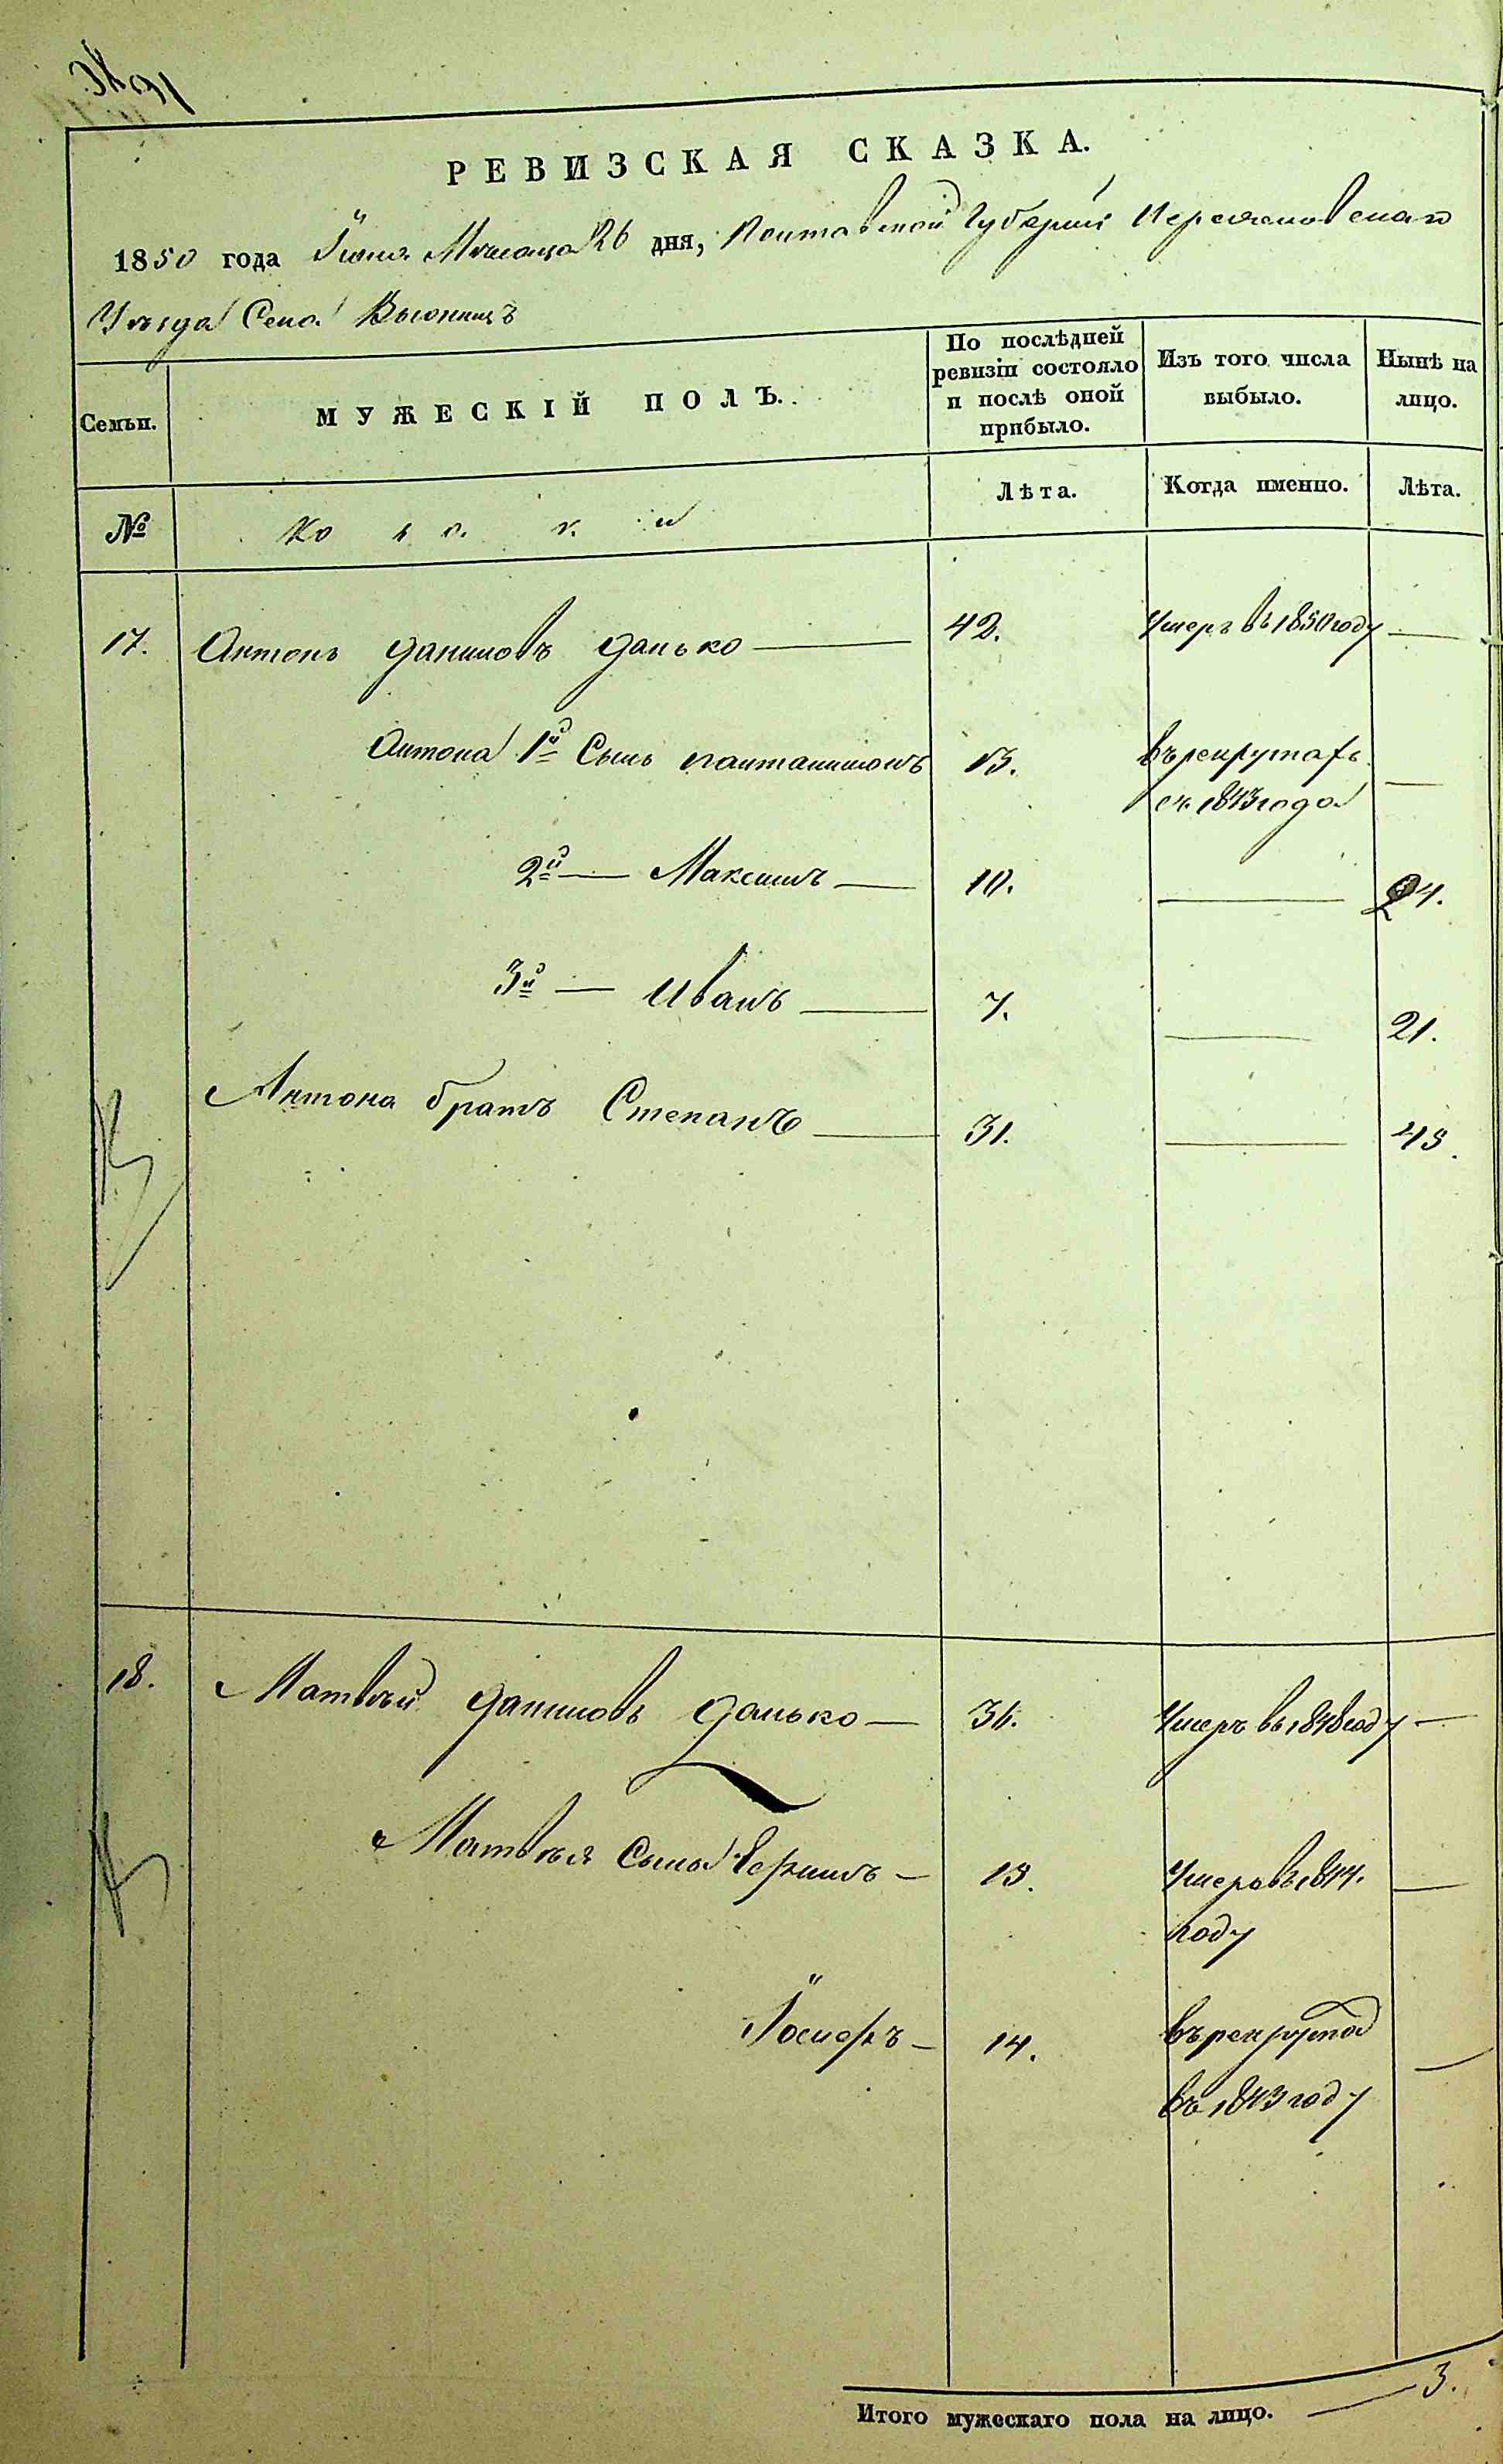 РЕВИЗСКАЯ СКАЗКА.
1850 года Іюня Мѣсяца 26 дня, Полтавской Губерніи Переяславскаго
Уѣзда Села Вьюнищъ
Семьи.
МУЖЕСКІЙ ПОЛЪ.
По послѣдней ревизіи состояло и послѣ оной прибыло.
Изъ того числа выбыло.
Нынѣ на лицо.
№
Козаки
Лѣта.
Когда именно.
Лѣта.
17. Антонъ Даниловъ Данько — 42. Умеръ въ 1850 году —
Антона 1й Сынъ Пантелимонъ 13. въ рекрутахъ —
съ 1843 года
2й — Максимъ — 10. — 24.
3й — Иванъ — 7. — 21.
Антона братъ Степанъ — 31. — 45.
18. Матвѣй Даниловъ Данько — 36. Умеръ въ 1848 году —
Матвѣя Сыны — 19. Умеръ въ 1844. —
году
Іосифъ — 14. въ рекруты —
въ 1843 году
Итого мужескаго пола на лицо. — 3.